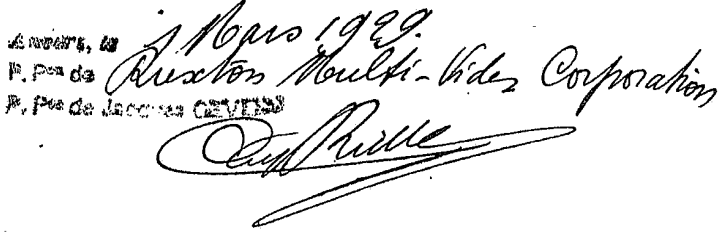 Anvers, le 1 Mars 1929.
P. Pon de Ruxton Multi-Vider Corporation
P. Pon de Jacques GEVERS